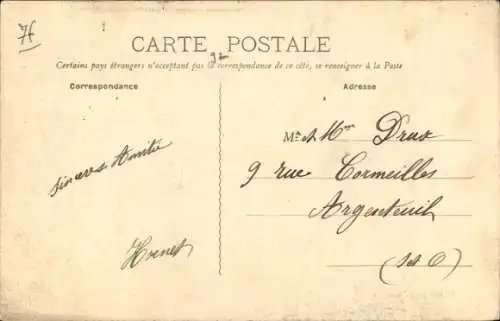 H
CARTE POSTALE
92
Certains pays étrangers n'acceptant pas la correspondance de ce côté, se renseigner à la Poste
Correspondance
Adresse
Mr et Mme Drux
9 rue Cormeilles
Argenteuil
(S et O)
Sincères Amitiés